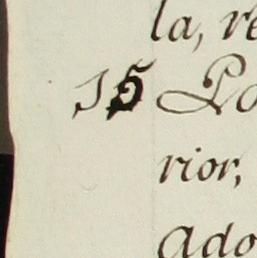 la, re
15 Po
rior,
ado